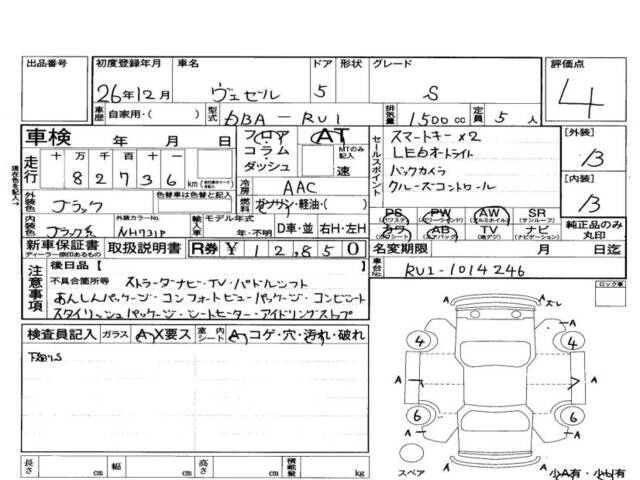 出品番号 初度登録年月 車名 ドア 形状 グレード 評価点
26年12月 ヴェゼル 5 S 4
車歴 自家用・( ) 型式 DBA-RU1 排気量 1500cc 定員 5人
車検 年 月 日 フロア コラム ダッシュ AT MTのみ記入 速
セールスポイント スマートキー×2
LEDオートライト
バックカメラ
クルーズコントロール
[外装] B
[内装] B
現在色を記入→
走行 十 万 千 百 十
8 2 7 3 6 km
冷房 AAC
外装色 ブラック 色替車は色替と記入 燃料 ガソリン・軽油・( )
PS PW AW SR
(パワステ) (パワーウインド) (アルミホイル) (サンルーフ)
カワ AB TV ナビ
(カワシート) (エアバック) (地デジ) (ナビゲーション)
純正品のみ丸印
内装色 ブラック系 外装カラーNo. NH731P 輸入車 モデル年式 年 D車・並 右H・左H
新車保証書 ディーラー捺印あるもの 取扱説明書 R券 ¥ 12,850
名変期限 月 日迄
車台No. RU1-1014246
注意事項 後日品 [ ]
不具合箇所等 ストラーダナビ・TV・パドルシフト
あんしんパッケージ・コンフォートビューパッケージ・コンビシート
スタイリッシュパッケージ・シートヒーター・アイドリングストップ
ロック車
検査員記入 ガラス A X要ス 室内 シート A コゲ・穴・汚れ・破れ
下廻りS
ズレ
4 4
A A A A
6 6
A A
A
スペア
少A有・少U有
長さ cm 幅 cm 高さ cm 積載量 kg